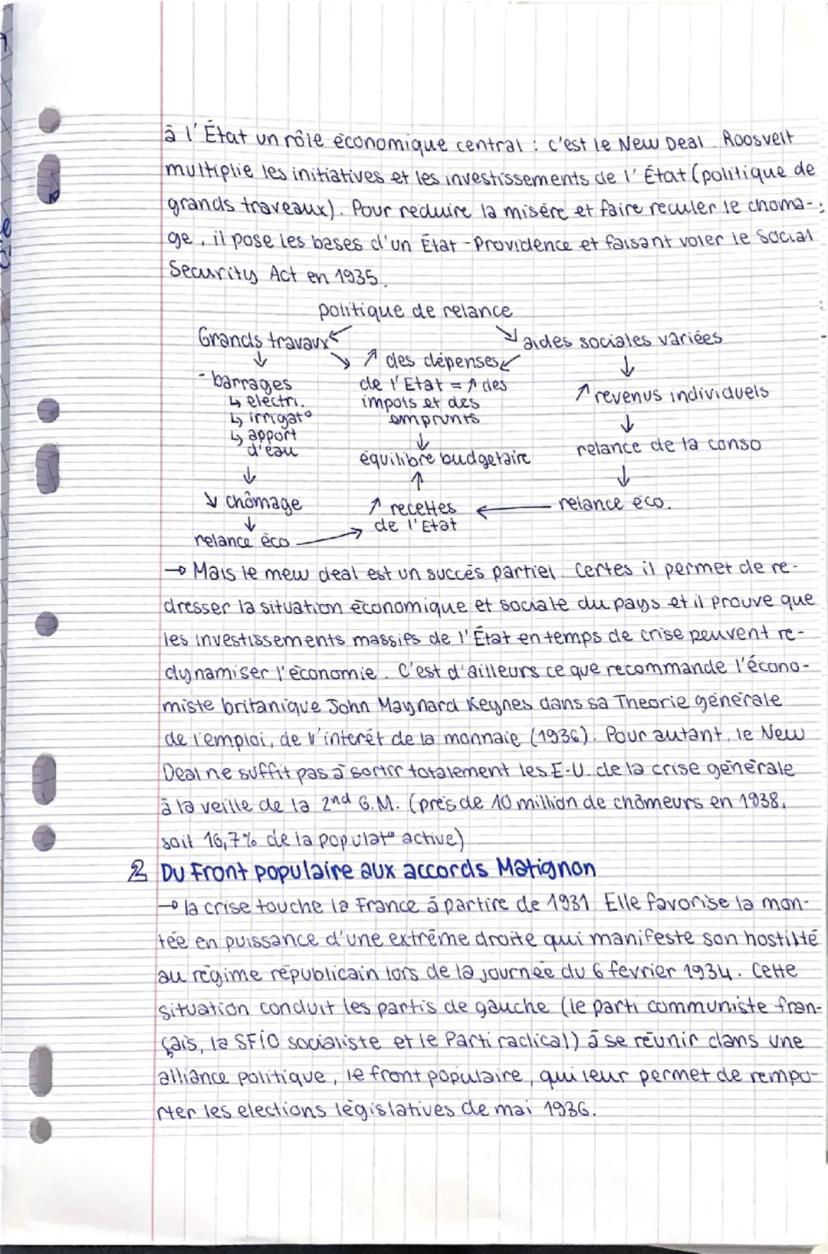 à l'État un rôle économique central : c'est le New Deal. Roosvelt
multiplie les initiatives et les investissements de l'État (politique de
grands traveaux). Pour reduire la misère et faire reculer le choma-
ge, il pose les bases d'un État-Providence et faisant voter le Social
Security Act en 1935.
politique de relance
Grands travaux
aides sociales variées
↗ des dépenses
de l'Etat = ↗ des
impots et des
emprunts
↓
équilibre budgetaire
↑
↗ recettes
de l'Etat
↓
- barrages
↳ électri.
↳ irrigat°
↳ apport
d'eau
↓
↘ chômage
↓
relance éco
↓
↗ revenus individuels
↓
relance de la conso
↓
relance éco.
→ Mais le mew deal est un succès partiel. Certes il permet de re-
dresser la situation économique et sociale du pays et il prouve que
les investissements massifs de l'État en temps de crise peuvent re-
dynamiser l'économie. C'est d'ailleurs ce que recommande l'écono-
miste britanique John Maynard Keynes dans sa Theorie générale
de l'emploi, de l'interêt de la monnaie (1936). Pour autant, le New
Deal ne suffit pas à sortir totalement les E-U. de la crise générale
à la veille de la 2nd G.M. (près de 10 million de chômeurs en 1938,
soit 16,7% de la populat° active)
2 Du Front populaire aux accords Matignon
→ la crise touche la France à partire de 1931. Elle favorise la mon-
tée en puissance d'une extrême droite qui manifeste son hostilité
au régime républicain lors de la journée du 6 fevrier 1934. Cette
situation conduit les partis de gauche (le parti communiste fran-
çais, la SFIO socialiste et le Parti radical) à se réunir dans une
alliance politique, le front populaire, qui leur permet de rempo-
rter les elections législatives de mai 1936.